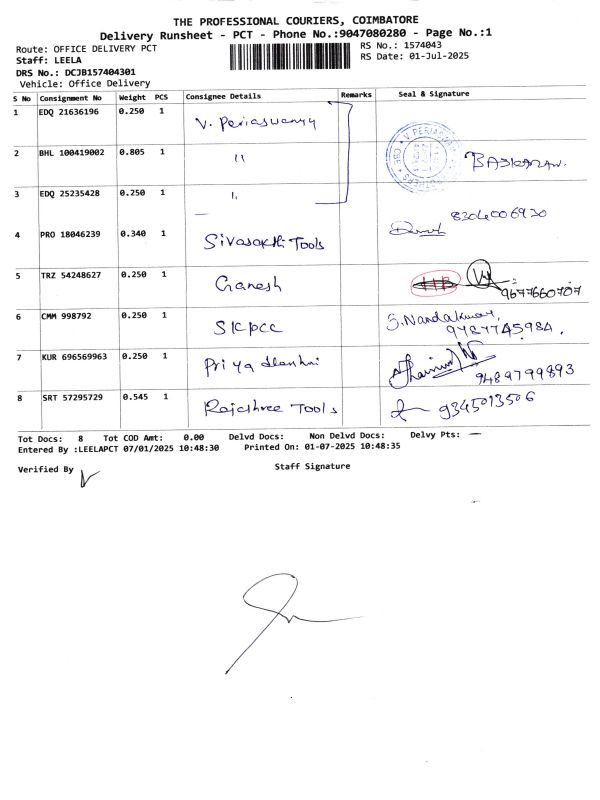 THE PROFESSIONAL COURIERS, COIMBATORE
Delivery Runsheet - PCT - Phone No.:9047080280 - Page No.:1
Route: OFFICE DELIVERY PCT RS No.: 1574043
Staff: LEELA RS Date: 01-Jul-2025
DRS No.: DCJB157404301
Vehicle: Office Delivery
S No Consignment No Weight PCS Consignee Details Remarks Seal & Signature
1 EDQ 21636196 0.250 1 V. Periaswamy
2 BHL 100419002 0.805 1 " BASKARAN.
3 EDQ 25235428 0.250 1 "
4 PRO 18046239 0.340 1 Sivasakthi Tools 8304006920
5 TRZ 54248627 0.250 1 Ganesh 9677660707
6 CMM 998792 0.250 1 S.Nandakumar,
9787745984.
7 KUR 696569963 0.250 1 Priya 9489799893
8 SRT 57295729 0.545 1 Rajashree Tools 9345013506
Tot Docs: 8 Tot COD Amt: 0.00 Delvd Docs: Non Delvd Docs: Delvy Pts: —
Entered By :LEELAPCT 07/01/2025 10:48:30 Printed On: 01-07-2025 10:48:35
Verified By Staff Signature